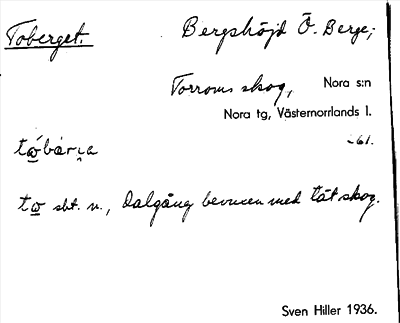 Toberget. Bergshöjd Ö. Berge;
Torroms skog, Nora s:n
Nora tg, Västernorrlands l.
-61.
to sbt. n., Dalgång bevuxen med tät skog.
Sven Hiller 1936.